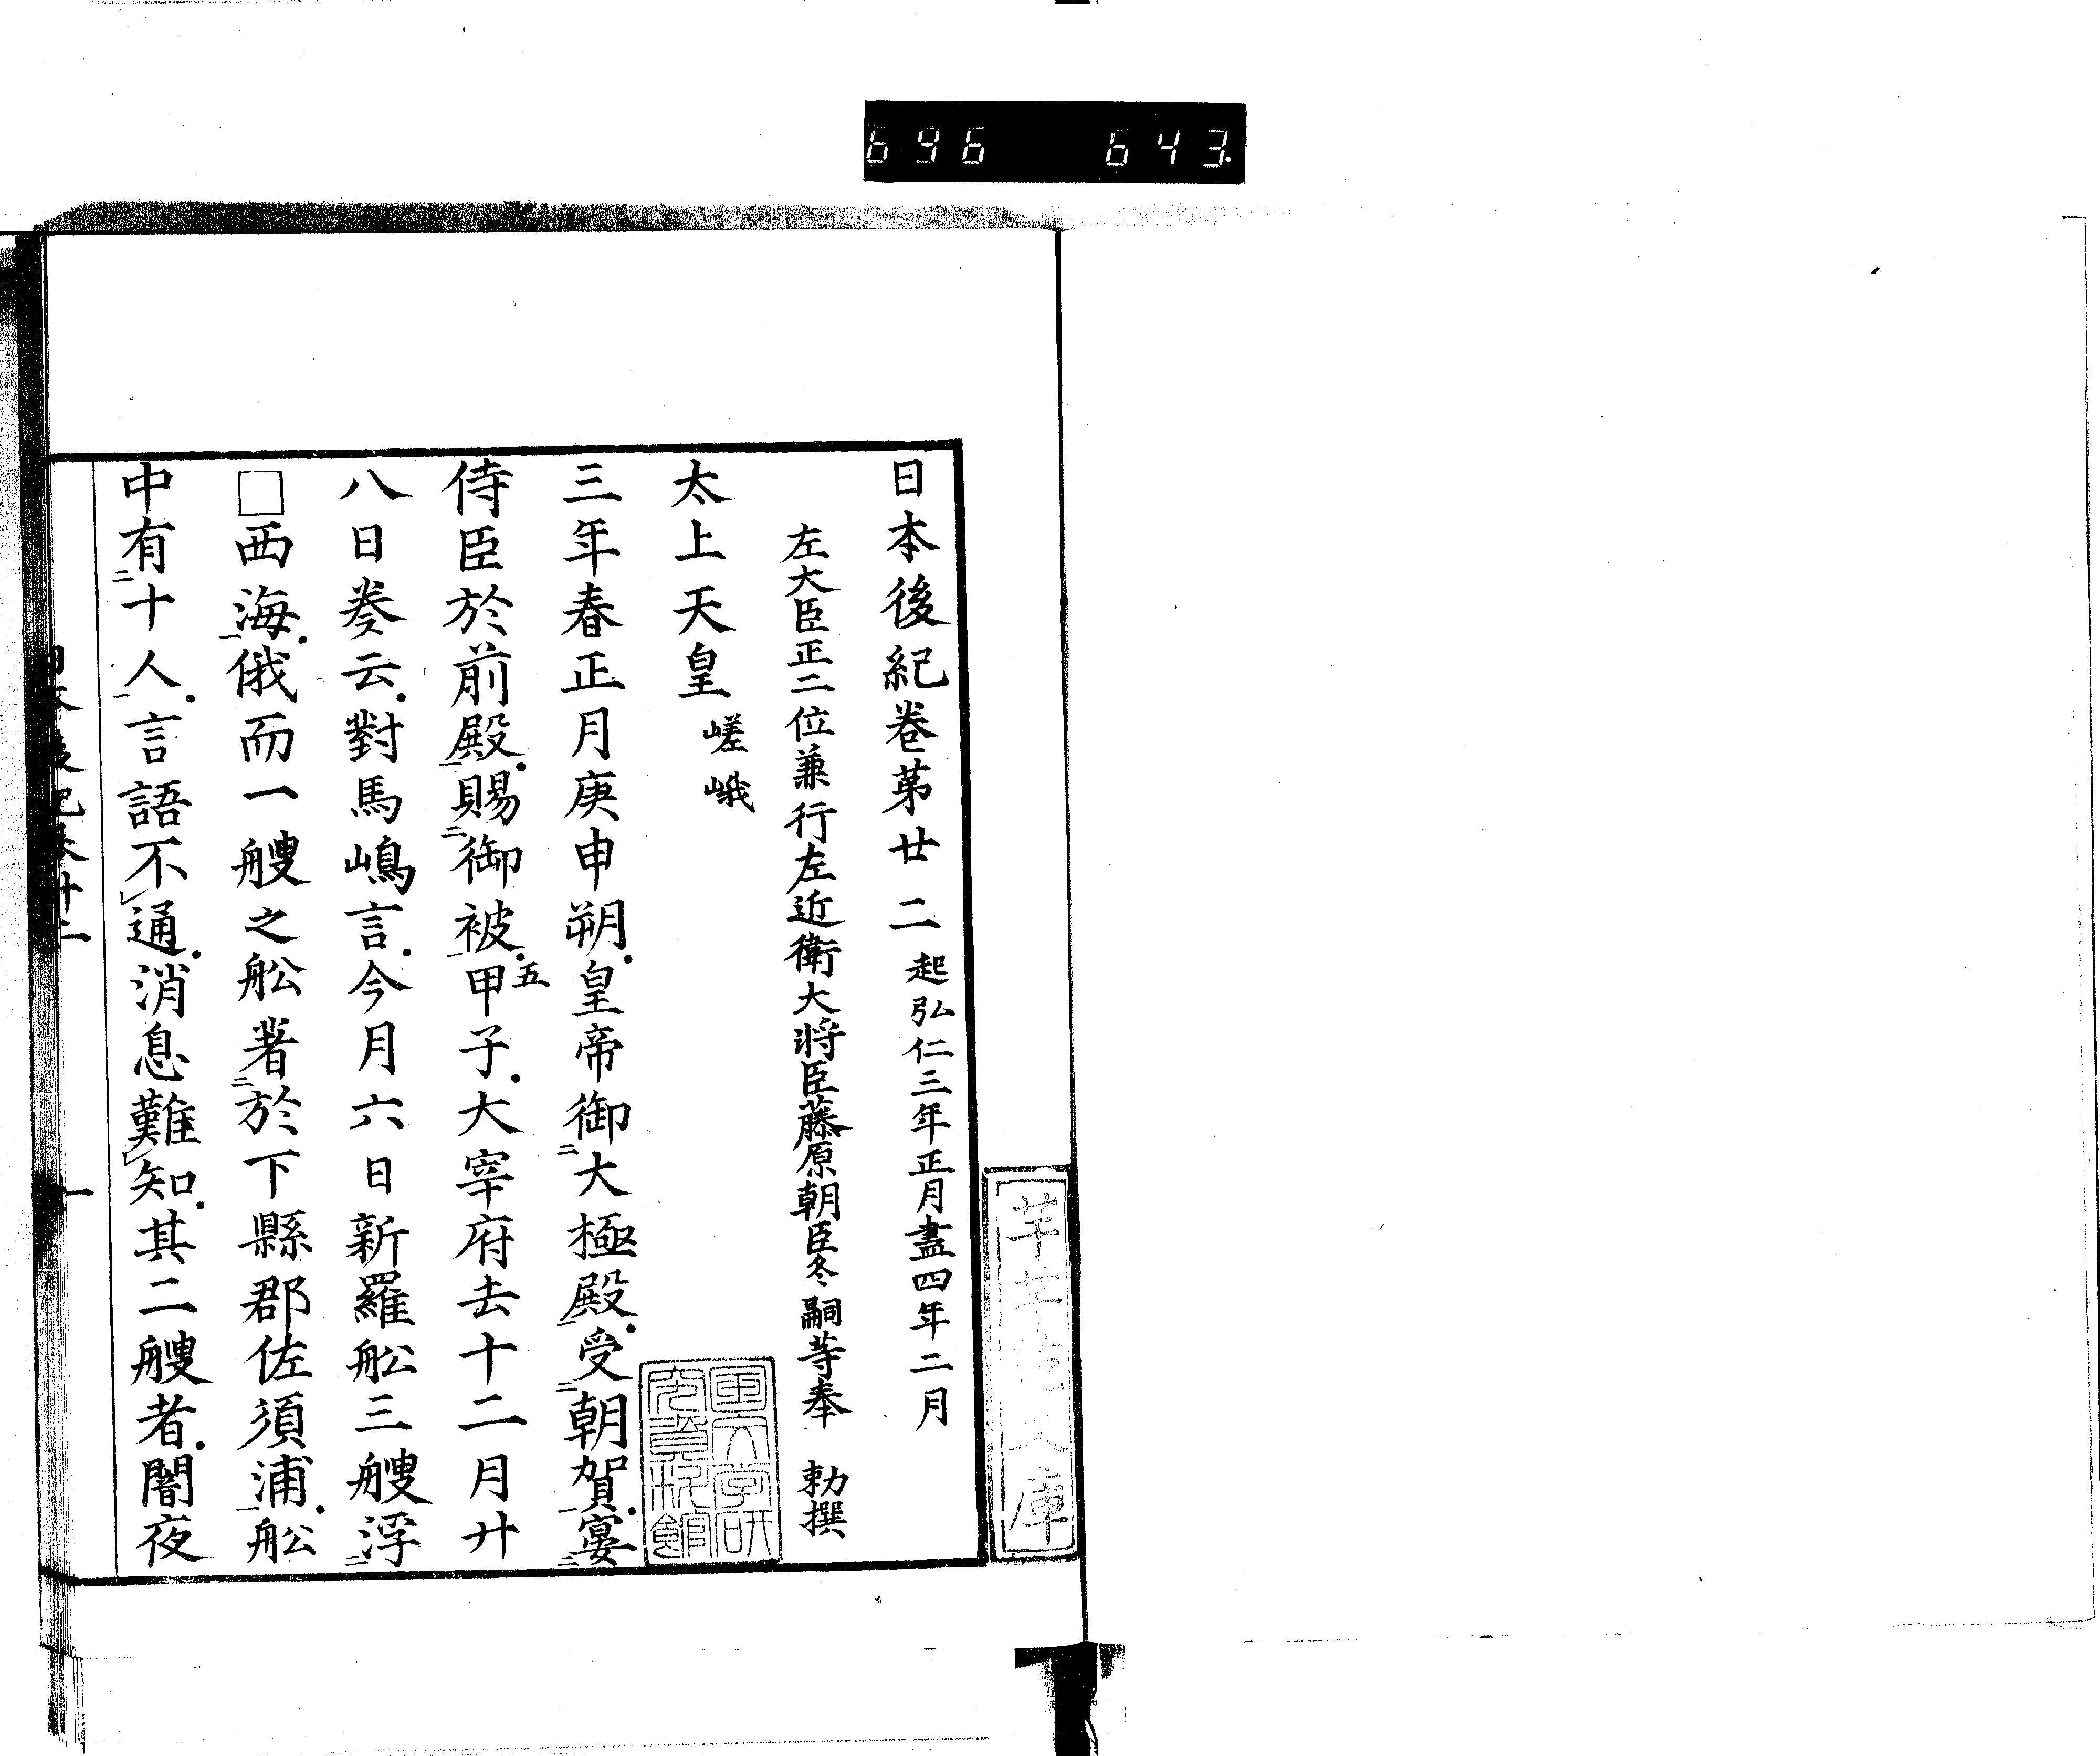 696 643
日本後紀卷第廿二 起弘仁三年正月盡四年二月
左大臣正二位兼行左近衛大將臣藤原朝臣冬嗣等奉 勅撰
太上天皇 嵯峨
三年春正月庚申朔皇帝御二大極殿一受二朝賀一宴二
侍臣於前殿一賜二御被一五甲子大宰府去十二月廾
八日奏云對馬嶋言今月六日新羅舩三艘浮二
□西海一俄而一艘之舩著二於下縣郡佐須浦一舩
中有二十人一言語不レ通消息難レ知其二艘者闇夜
日本後紀卷廿二 一
國文学研
究資料館
文庫